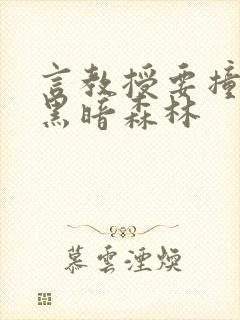 言教授要撞
黑暗森林
慕雲湮煥